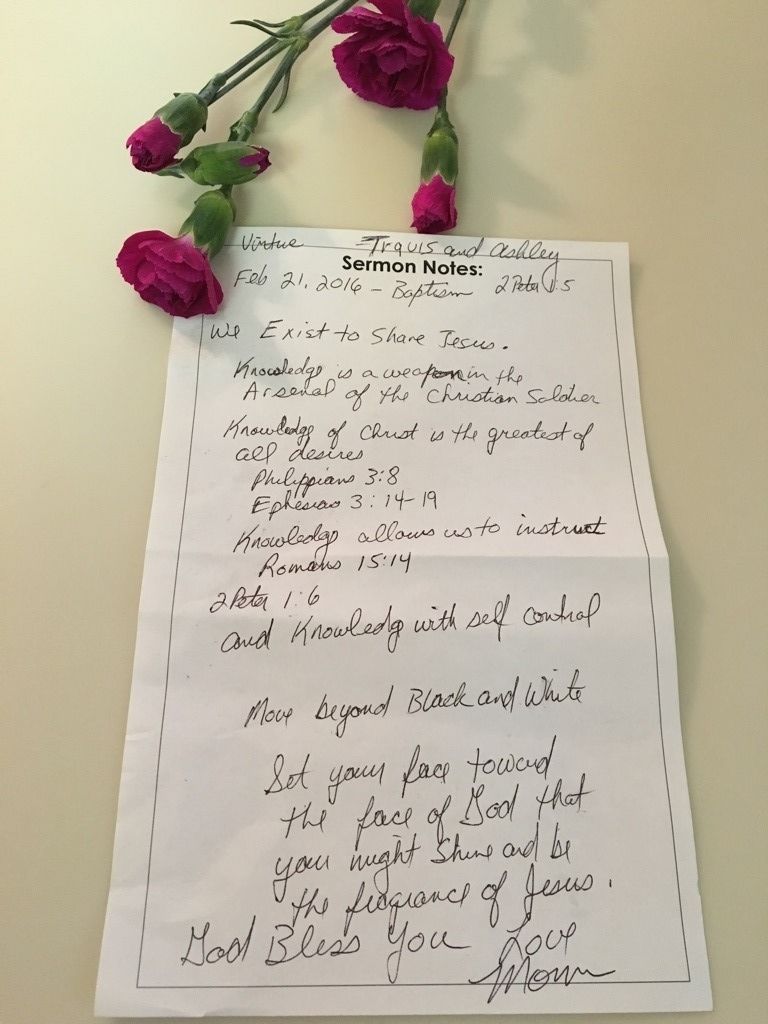 Virtue Travis and Ashley
Sermon Notes:
Feb 21, 2016 - Baptism 2 Peter 1:5
We Exist to Share Jesus.
Knowledge is a weapon in the
Arsenal of the Christian Soldier
Knowledge of Christ is the greatest of
all desires
Philippians 3:8
Ephesians 3:14-19
Knowledge allows us to instruct
Romans 15:14
2 Peter 1:6
and Knowledg with self control
Move beyond Black and White
Set your face toward
the face of God that
your might Shine and be
the fragrance of Jesus.
God Bless You Love
Mom